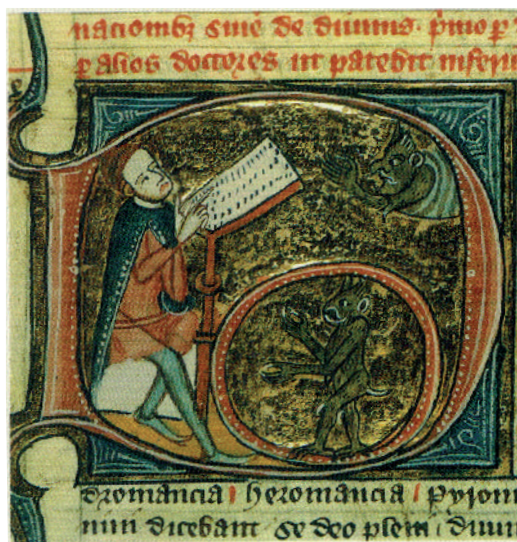 nacionibꝫ siue de diuinis. p̄mo ꝑ
ꝑ alios doctores ut patebit inferiu
dromancia / heromancia / Pyrom
nini dicebant se deo pleni / diuin